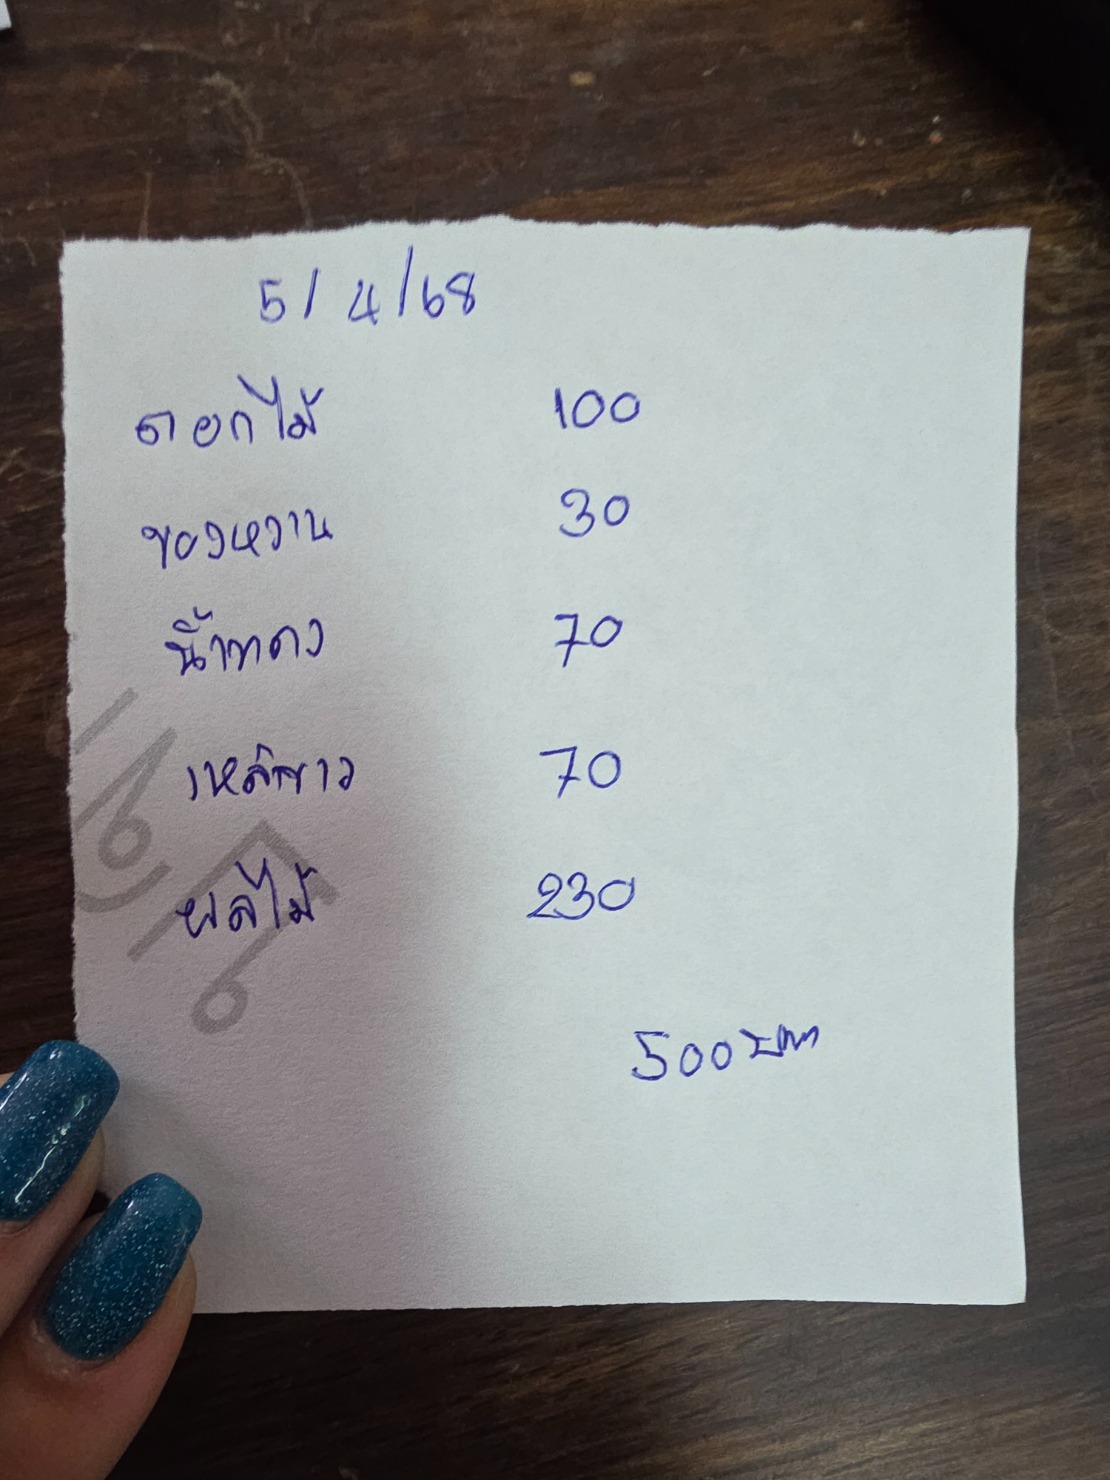 5/4/68
ดอกไม้ 100
ของหวาน 30
น้ำแดง 70
เหล้าขาว 70
ผลไม้ 230
500 บาท